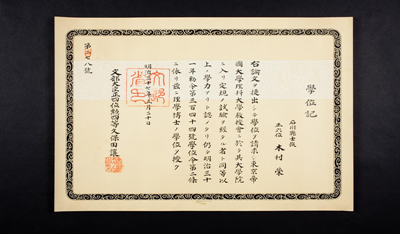 學位記
石川縣士族
正六位 木村榮
右論文ヲ提出シテ學位ヲ請求シ東京帝
國大學理科大學教授會ニ於テ其大學院
ニ入リ定規ノ試驗ヲ經タル者ト同等以
上ノ學力アリト認メタリ仍テ明治三十
一年勅令第三百四十四號學位令第二條
ニ依リ茲ニ理學博士ノ學位ヲ授ク
明治三十七年三月三十日
文部大臣正四位勳四等久保田讓